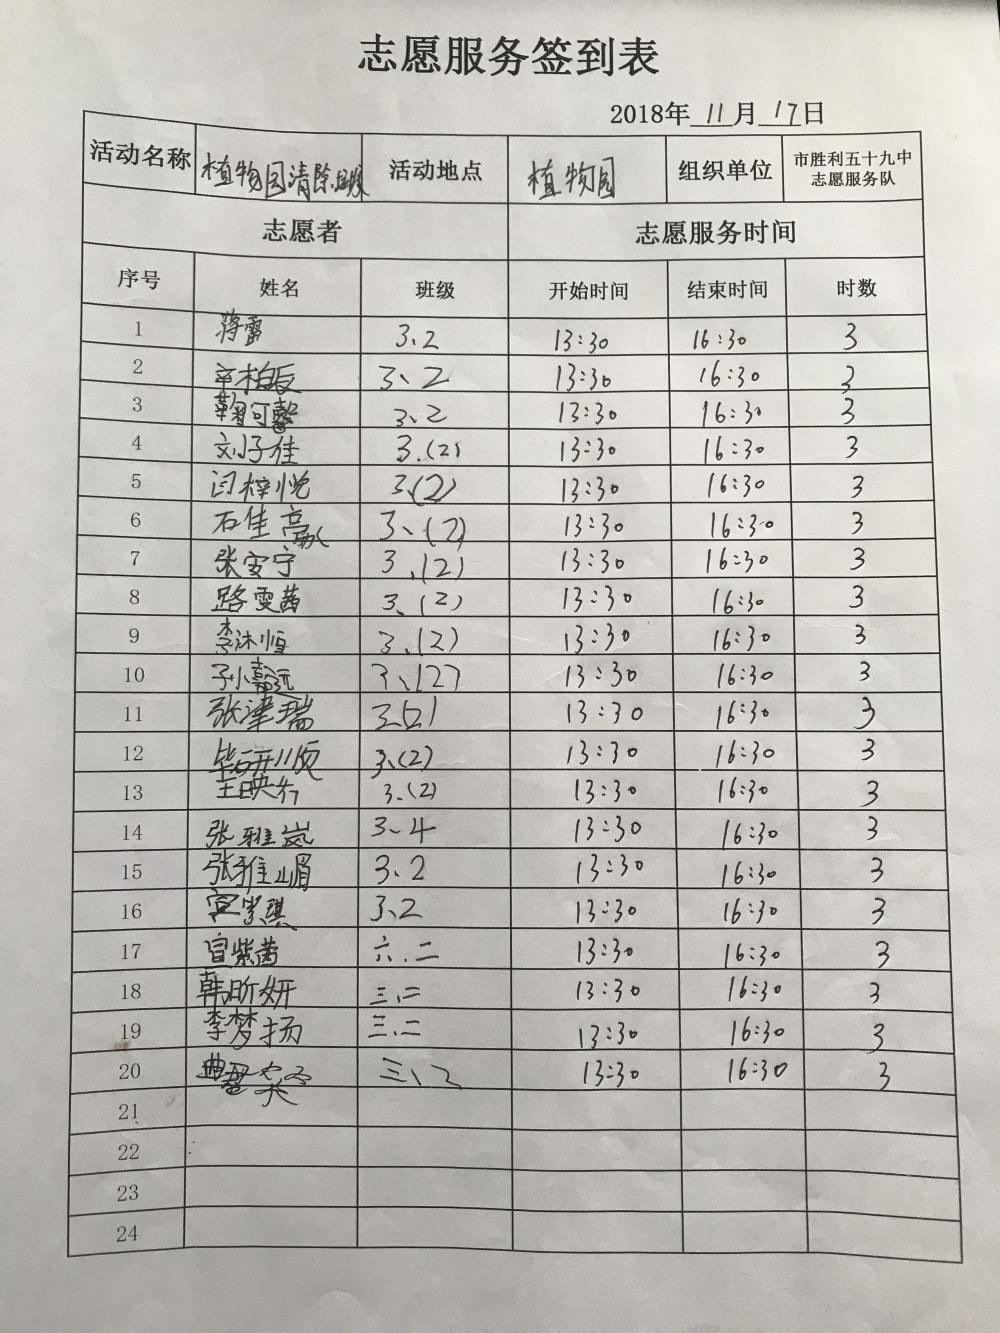 志愿服务签到表
2018年 11 月 17 日
活动名称 植物园清除垃圾 活动地点 植物园 组织单位 市胜利五十九中志愿服务队
志愿者 志愿服务时间
序号 姓名 班级 开始时间 结束时间 时数
1 蒋雷 3、2 13:30 16:30 3
2 辛柏辰 3、2 13:30 16:30 3
3 鞠可馨 3、2 13:30 16:30 3
4 刘子佳 3.(2) 13:30 16:30 3
5 闫梓悦 3.(2) 13:30 16:30 3
6 石佳 3、(2) 13:30 16:30 3
7 张安宁 3、(2) 13:30 16:30 3
8 路雯茜 3、(2) 13:30 16:30 3
9 李沐恒 3、(2) 13:30 16:30 3
10 3、(2) 13:30 16:30 3
11 张津瑞 3(2) 13:30 16:30 3
12 毕研顺 3、(2) 13:30 16:30 3
13 王映 3.(2) 13:30 16:30 3
14 张雅岚 3、4 13:30 16:30 3
15 张雅嵋 3、2 13:30 16:30 3
16 3、2 13:30 16:30 3
17 宣紫茜 六.二 13:30 16:30 3
18 韩昕妍 三、二 13:30 16:30 3
19 李梦扬 三、二 13:30 16:30 3
20 曲 三、2 13:30 16:30 3
21
22
23
24